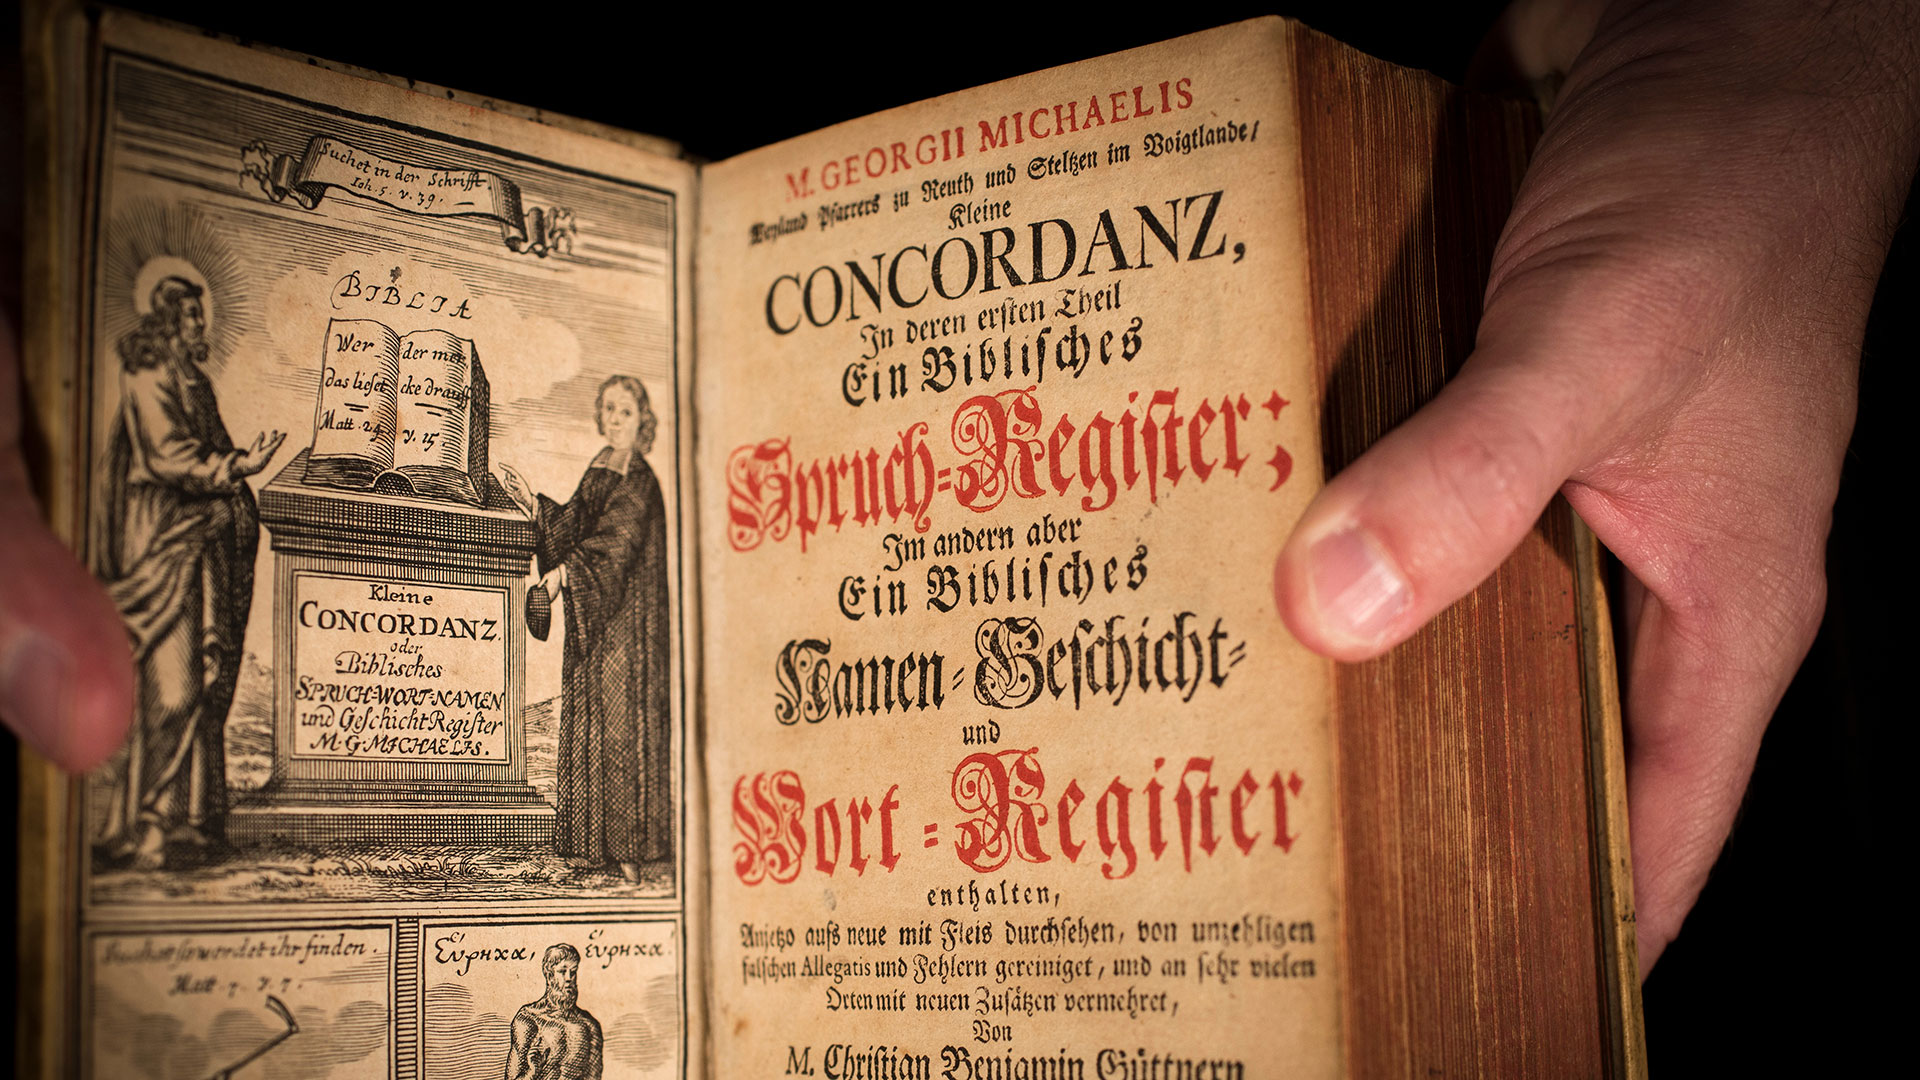 Suchet in der Schrifft
Ioh. 5. v. 39.
BIBLIA
Wer
das lieset
Matt. 24
der mer
cke drauff
v. 15
Kleine
CONCORDANZ.
oder
Biblisches
SPRUCH=WORT=NAMEN
und Geschicht Register
M. G. MICHAELIS.
ihr finden.
Matt. 7. v. 7.
Εὕρηκα, εὕρηκα.
M. GEORGII MICHAELIS
Weyland Pfarrers zu Reuth und Steltzen im Voigtlande/
Kleine
CONCORDANZ,
In deren ersten Theil
Ein Biblisches
Spruch=Register;
Im andern aber
Ein Biblisches
Namen=Geschicht=
und
Wort=Register
enthalten,
Anjetzo aufs neue mit Fleis durchsehen, von unzehligen
falschen Allegatis und Fehlern gereiniget, und an sehr vielen
Orten mit neuen Zusätzen vermehret,
Von
M. Christian Benjamin Güttnern